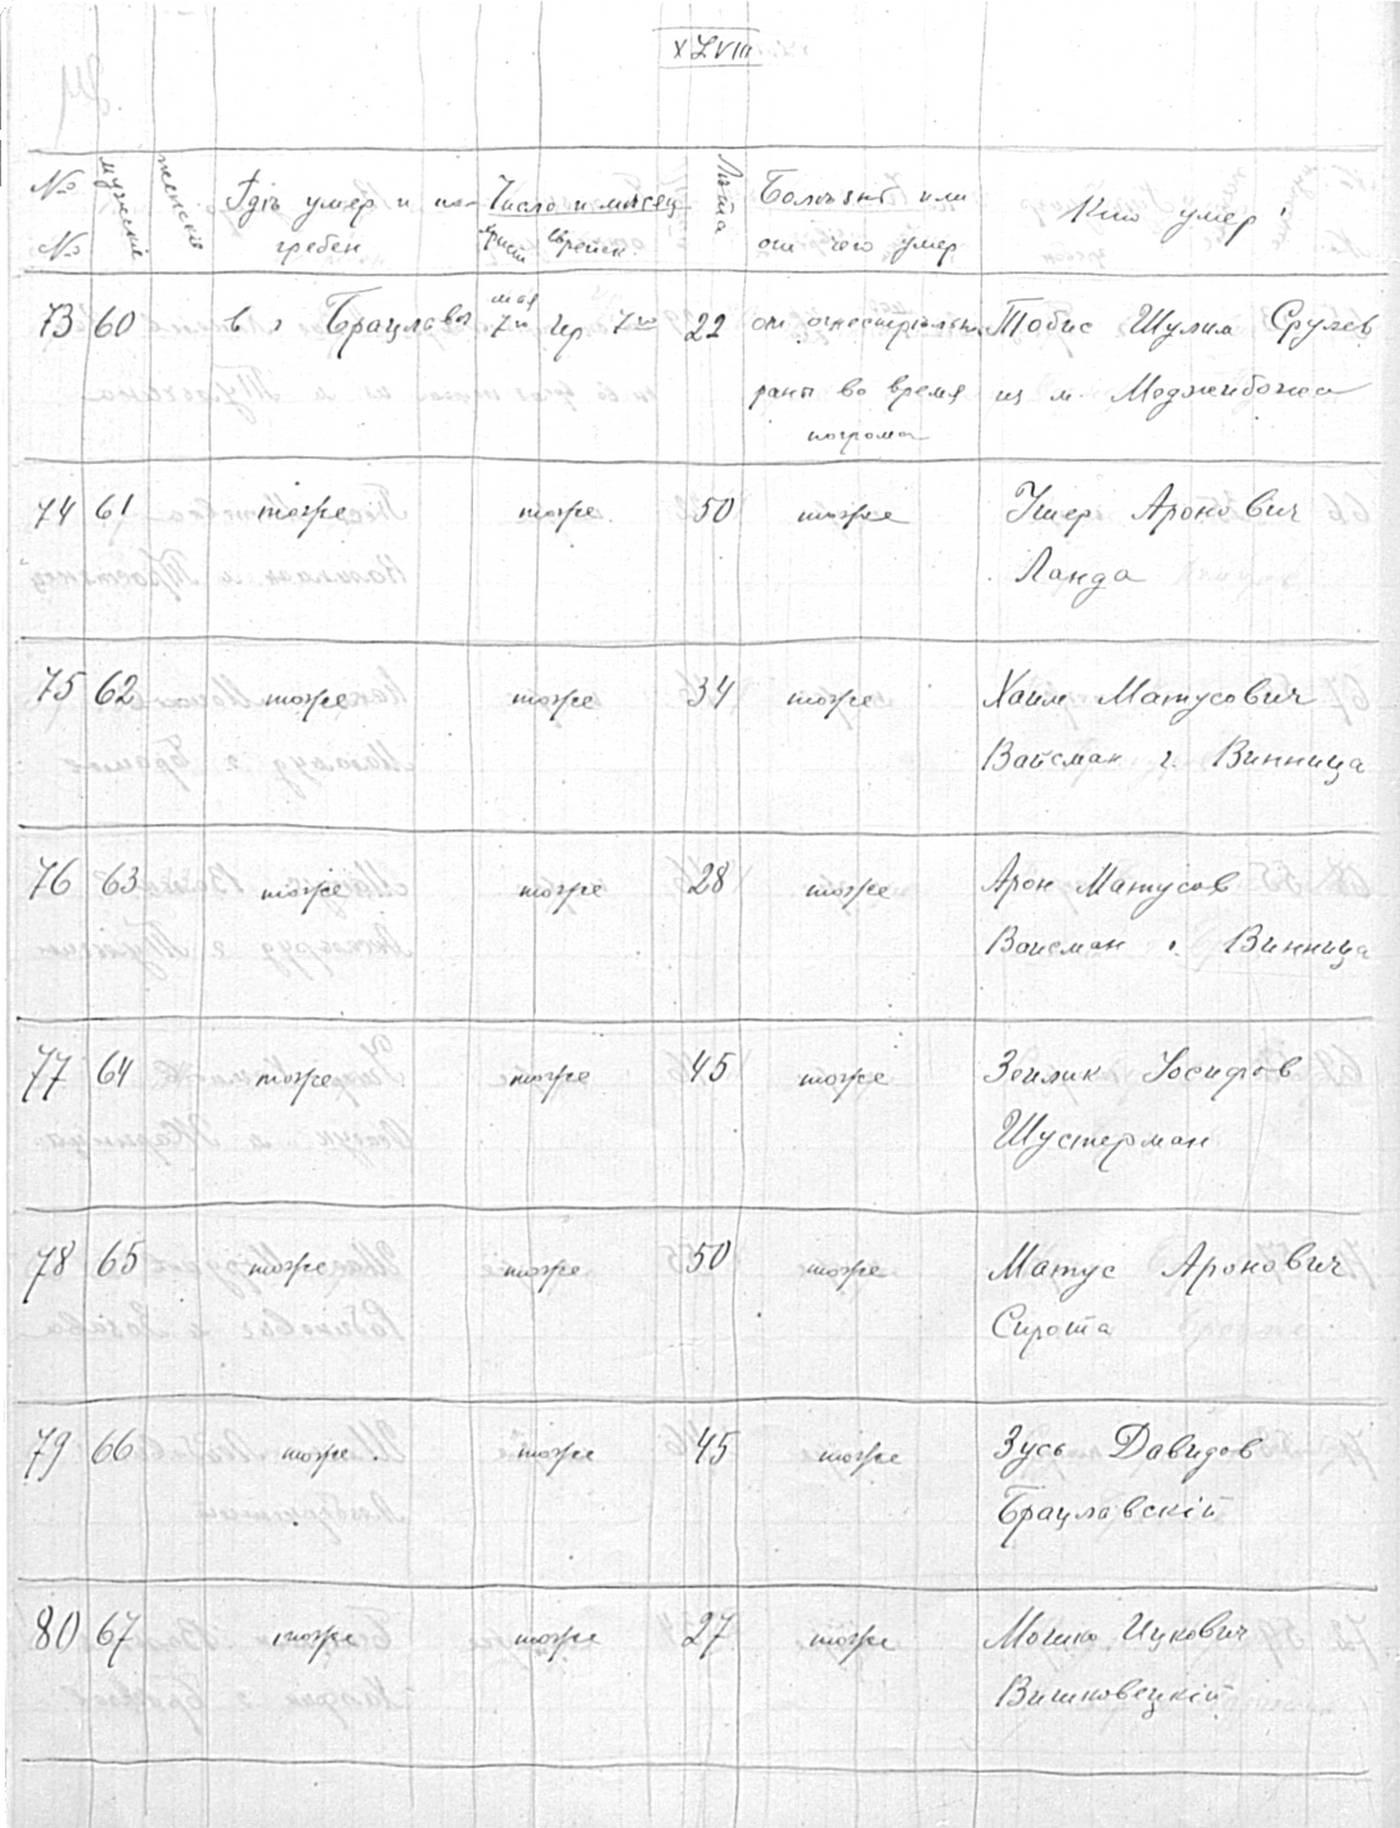 XLVIII
№ №
мужскіе
женскіе
Гдѣ умер и по-
гребен
Число и мѣсяц
христ. еврейск.
Лѣта
Болѣзнь или
от чего умер
Кто умер
73 60 в г Брацлавѣ мая 7го Ир 7го 22 от огнестрѣльн. Тобис Шулим Срулев
раны во время из м. Меджибожа
погрома
74 61 тоже тоже 50 тоже Ушер Аронович
Ланда
75 62 тоже тоже 34 тоже Хаим Матусович
Вайсман г. Винница
76 63 тоже тоже 28 тоже Арон Матусов
Вайсман г. Винница
77 64 тоже тоже 45 тоже Зейлик Іосифов
Шустерман
78 65 тоже тоже 50 тоже Матус Аронович
Сирота
79 66 тоже тоже 45 тоже Зусь Давидов
Брацлавскій
80 67 тоже тоже 27 тоже Мошко Ицкович
Вишковецкій